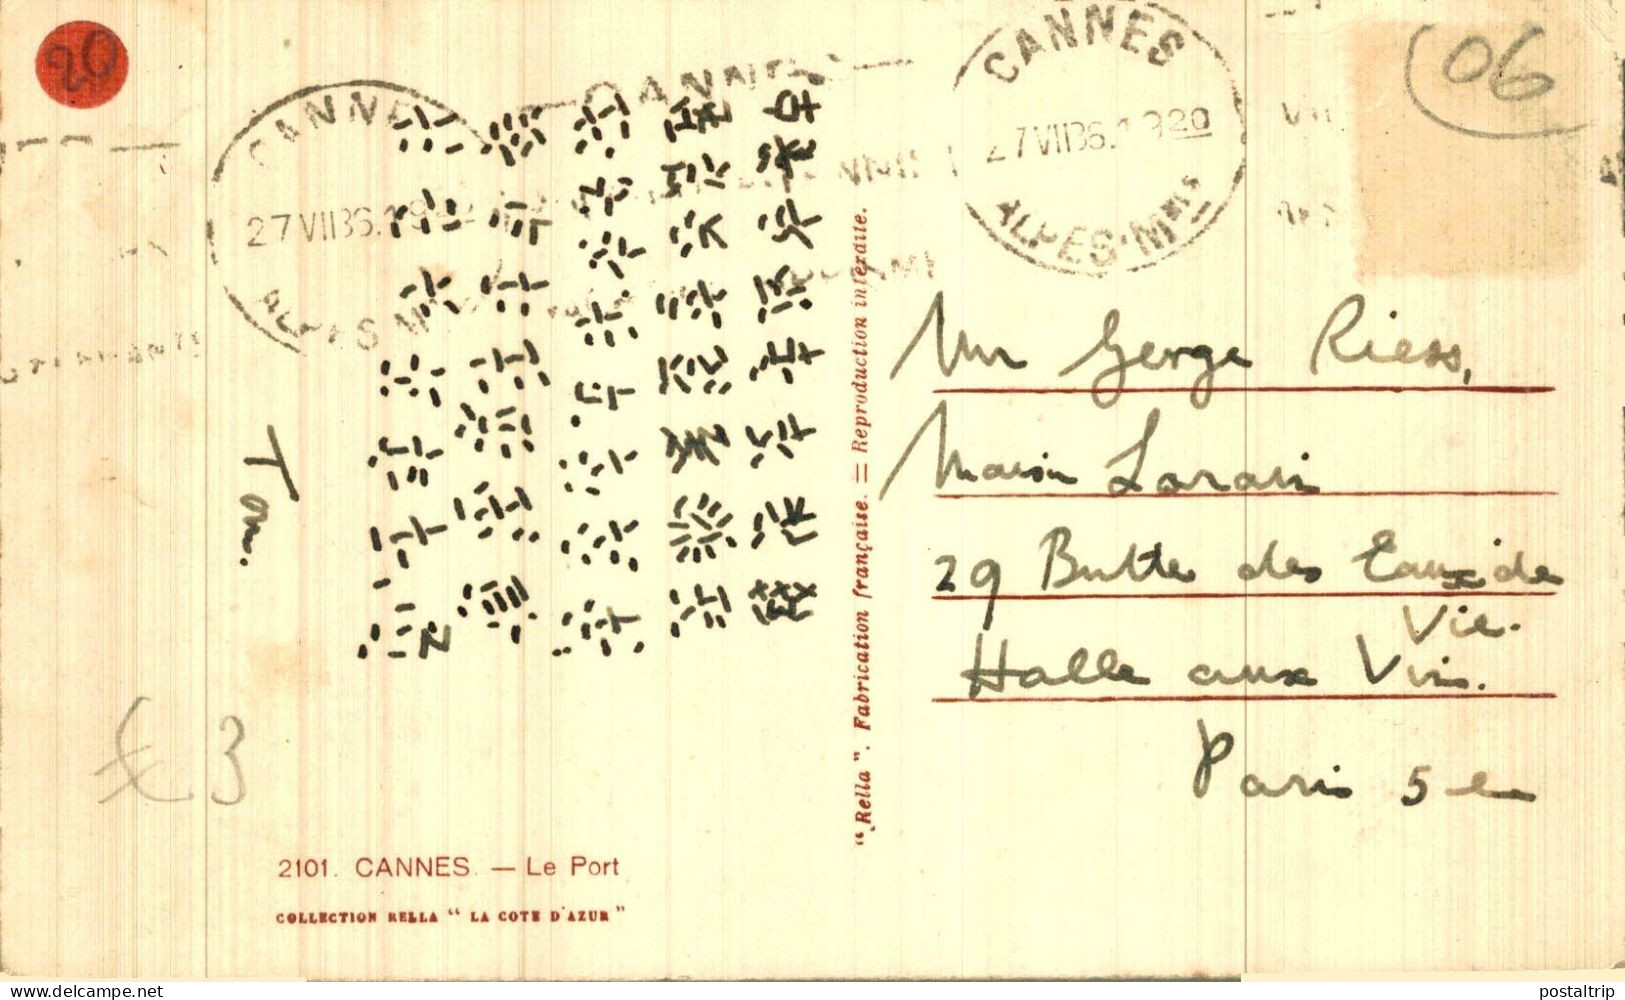 20
CANNES
27 VII 36. 1920
ALPES-Mmes
CANNES
27 VII 36. 1920
ALPES-Mmes
06
Mr Gerge Riess,
Maison
29 Butte des Eaux de
Vie.
Halle aux Vins.
Paris 5 e
Tom.
£ 3
"Rella". Fabrication française. = Reproduction interdite.
2101. CANNES. — Le Port
COLLECTION RELLA " LA COTE D'AZUR "
postaltrip